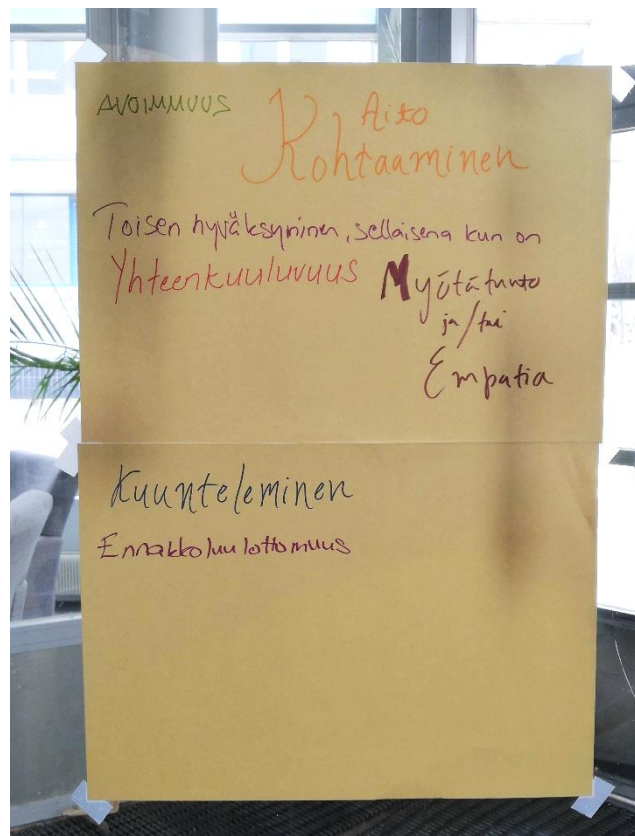 AVOIMMUUS
Aito
Kohtaaminen
Toisen hyväksyminen, sellaisena kun on
Yhteenkuuluvuus
Myötätunto
ja/tai
Empatia
Kuunteleminen
Ennakkoluulottomuus